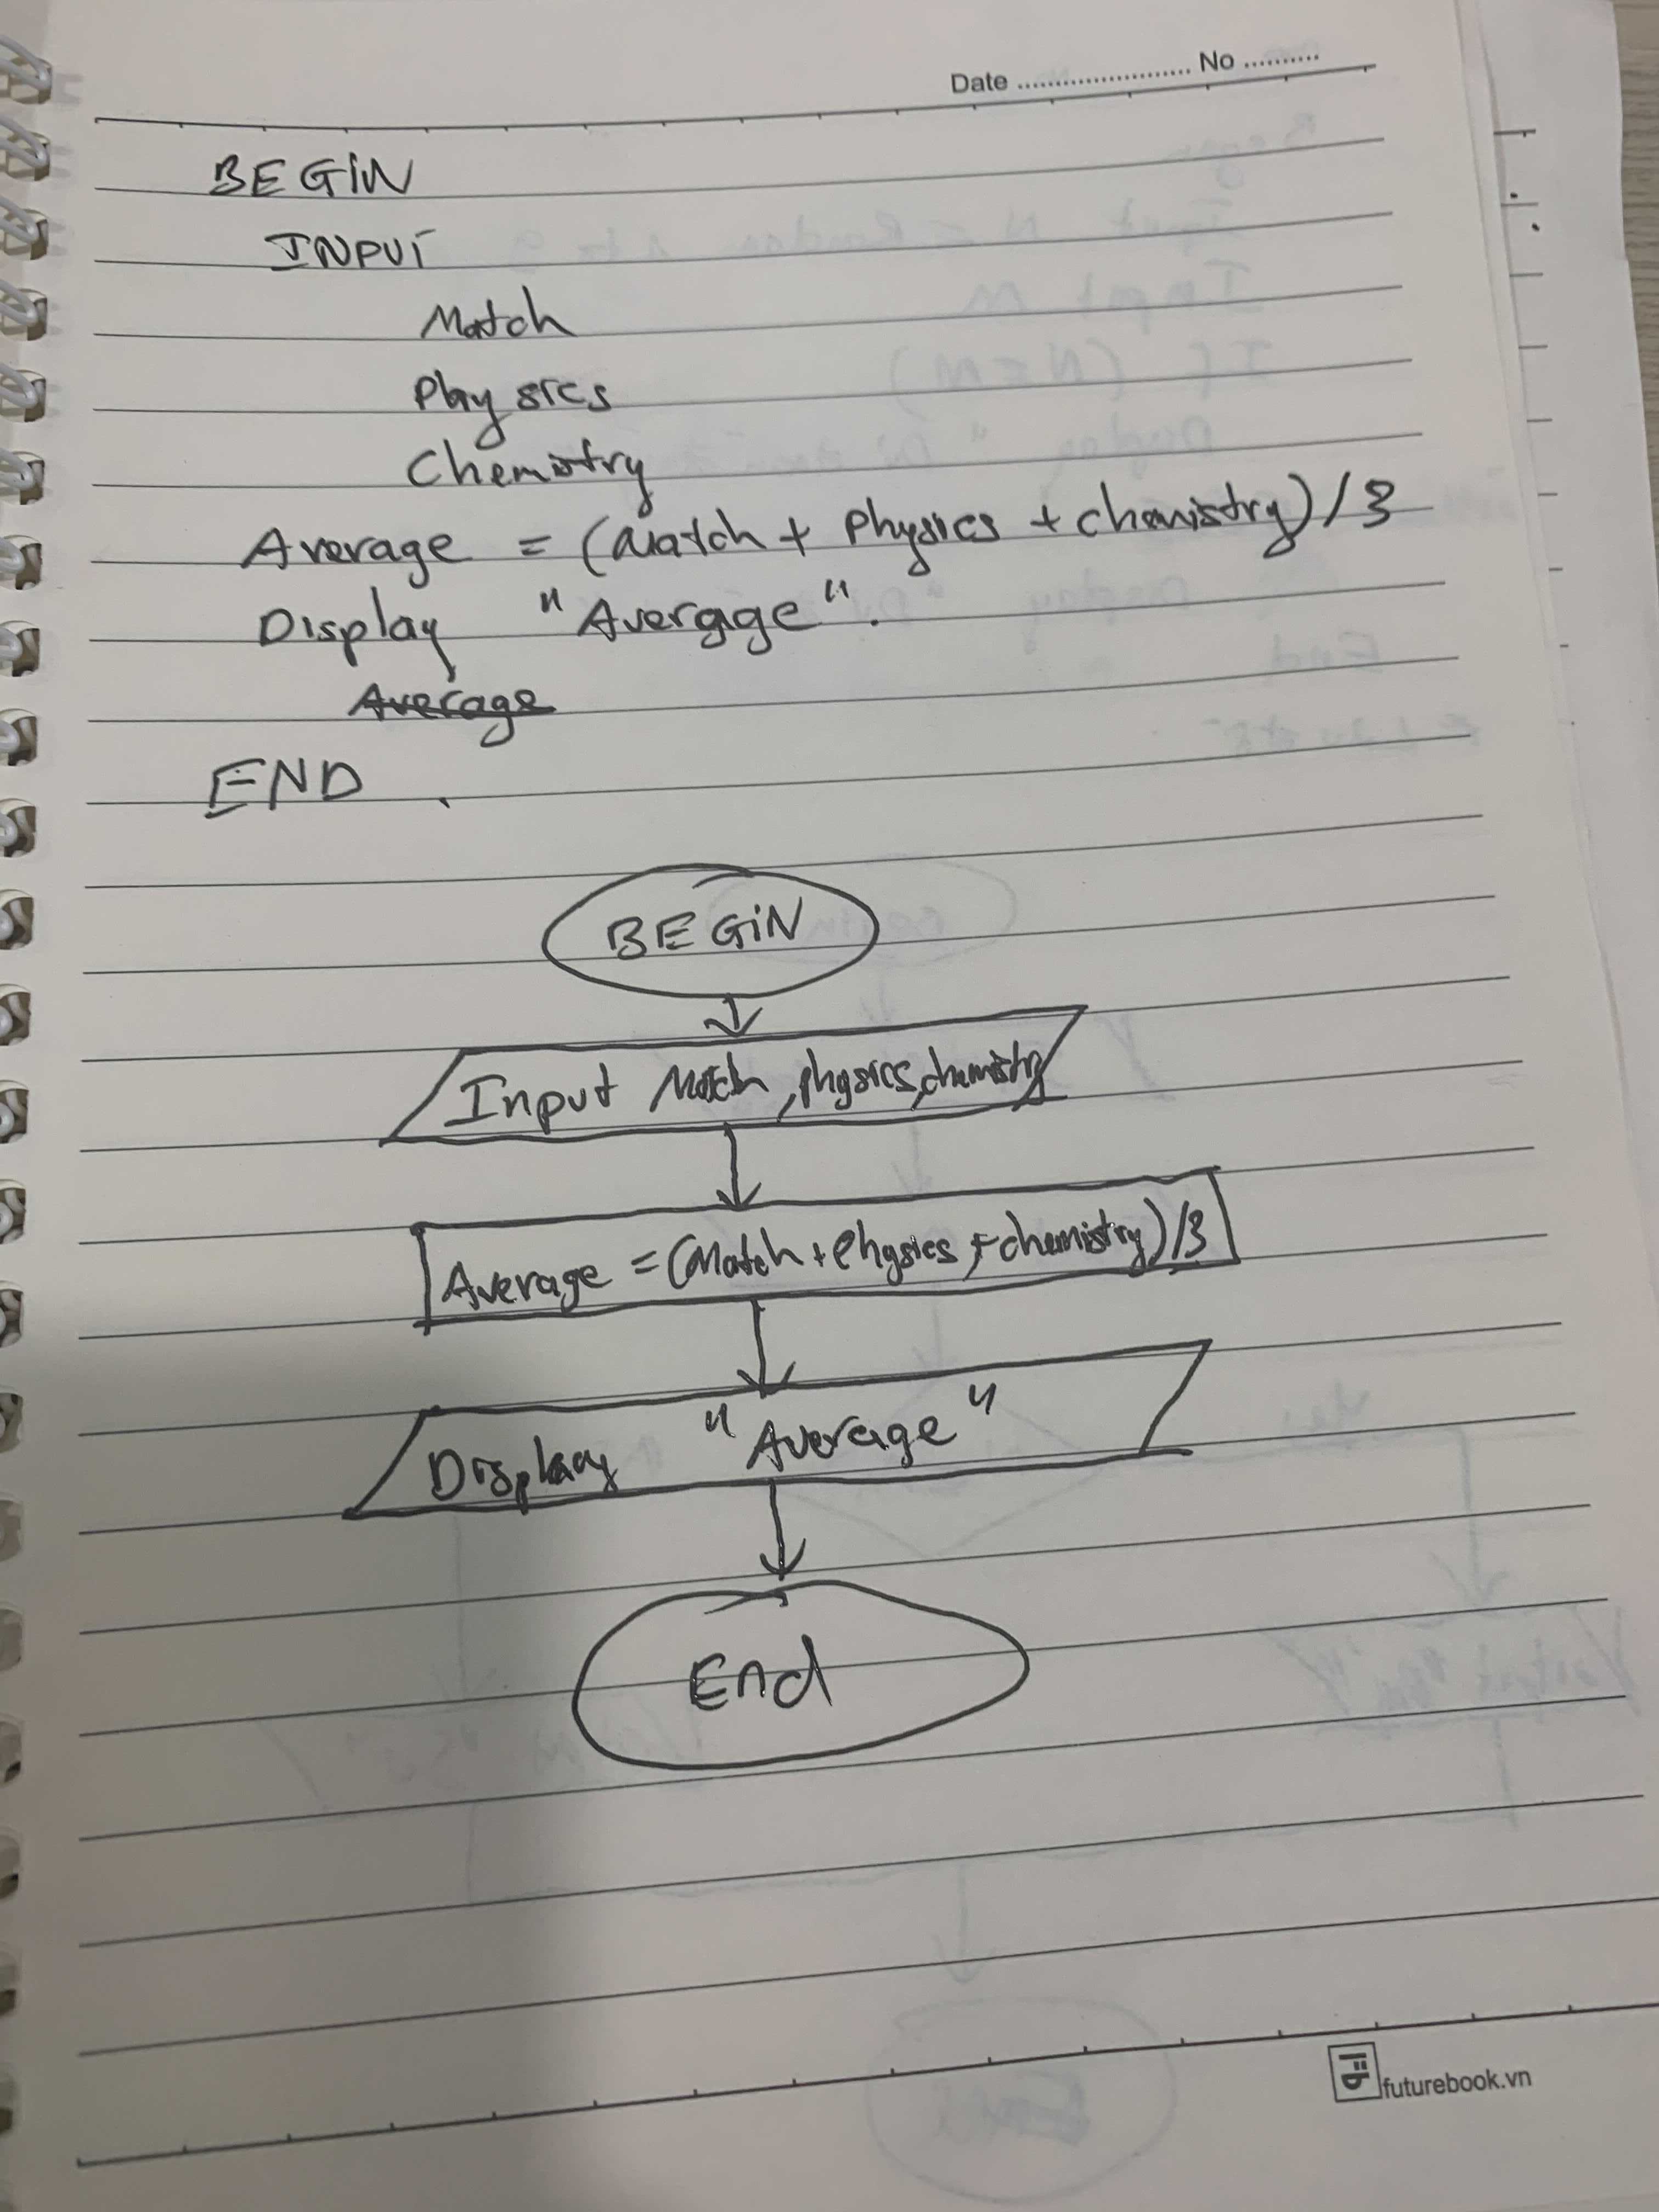 Date ........................ No ..........
BEGIN
INPUT
Match
Physics
Chemistry
Average = (Match + Physics + chemistry) / 3
Display "Average".
Average
END
BEGIN
Input Match, physics, chemistry
Average = (Match + Physics + chemistry) / 3
Display "Average"
End
futurebook.vn